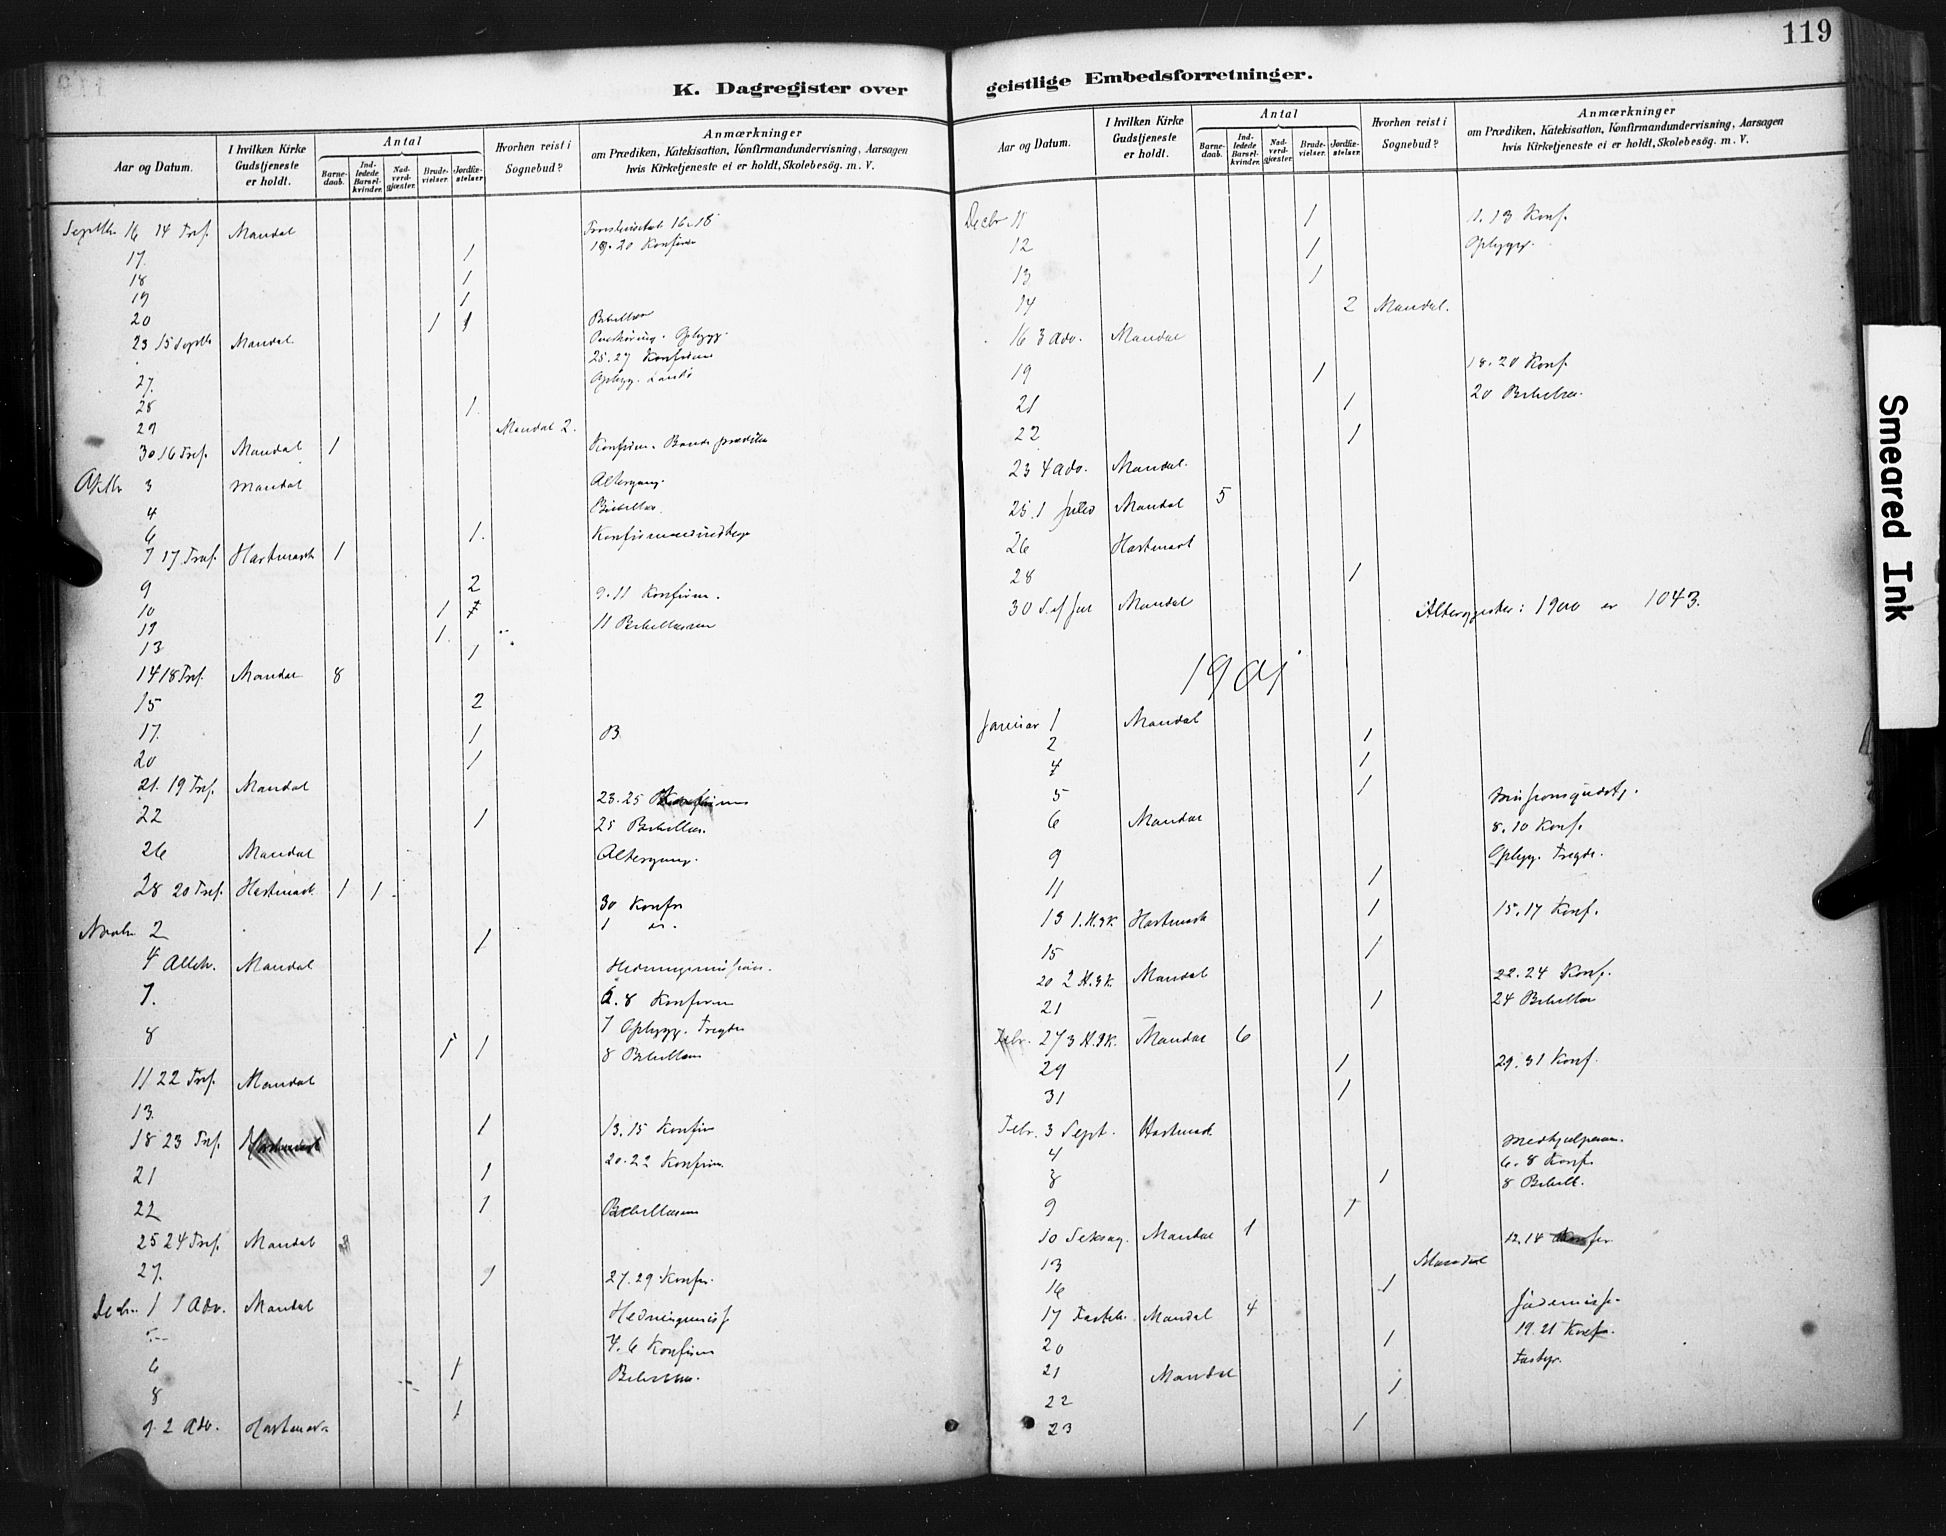 119
K. Dagregister over geistlige Embedsforretninger.
Aar og Datum. I hvilken Kirke Gudstjeneste er holdt. Antal Barnedaab. Indledede Barselkvinder. Nadverdgjæster. Brudevielser. Jordfæstelser. Hvorhen reist i Sognebud? Anmærkninger om Prædiken, Katekisation, Konfirmandundervisning, Aarsagen hvis Kirketjeneste ei er holdt, Skolebesög. m. V.
Septbr 16 14 Tref. Mandal 16-18
17. 1 19-20 Konfirm
18 1
19 1
20 1 1 Bibellæs
23 15 Mandal Opbygg.
25.27 Konfirm
27. Opbygg.
28 1
29 Mandal 2.
30 16 Tref. Mandal 1 Konfirm.
Oktbr 3 Mandal Altergang.
4 Bibellæs.
6 1. Konfirmand
7 17 Tref. Hartmark 1
9 2 9-11 Konfirm.
10 1
1. 11 Bibellæsn
13 1
14 18 Tref. Mandal 8
15 2
17. 1 B
20 1
21. 19 Tref. Mandal
23.25
22 1 25 Bibellæs.
26 Mandal Altergang.
28 20 Tref. Hartmark 1 1
30 Konfr
Novbr 2 1 1
4 Alleh. Mandal Hedningemission.
7. 6.8 Konfirm
7 Opbygg. Tregde
8 1 1 8 Bibellæsn
11 22 Tref. Mandal
13. 1 13.15 Konfir
18 23 Tref.
20-22 Konfirm.
21 1
22 1 Bibellæsn
25 24 Tref. Mandal
27. 1 27.29 Konfr.
Decbr. 1 1 Adv. Mandal Hedningemiss
4.6 Konfirm
6 1 Bibellæs.
8 1
9. 2 Adv. Hartmark
Aar og Datum. I hvilken Kirke Gudstjeneste er holdt. Antal Barnedaab. Indledede Barselkvinder. Nadverdgjæster. Brudevielser. Jordfæstelser. Hvorhen reist i Sognebud? Anmærkninger om Prædiken, Katekisation, Konfirmandundervisning, Aarsagen hvis Kirketjeneste ei er holdt, Skolebesög. m. V.
Decbr 11 1 11.13 Konf.
12 1 Opbygg.
13 1
14 2 Mandal.
16 3 Adv. Mandal
18.20 Konf.
19 1
20 Bibellæs.
21 1
22 1
23 4 Adv. Mandal.
25.1 Juled Mandal 5
26 Hartmark
28 1
30 S. ef Jul Mandal Altergjester i 1900 er 1043.
1901
Januar 1 Mandal
2 1
4 1
5 1 Missionsgudstj.
6 Mandal 8.10 Konf.
9 Opbyg. Tregde.
11 1
13 1. H.3K. Hartmark 1 15.17 Konf.
15 1
20 2 H.3K. Mandal 22.24 Konf.
21 1 24 Bibellæs
27 3 H.3K. Mandal 6
29 1 29.31 Konf.
31 1
Febr. 3 Sept. Hartmark
4 Medhjælperm.
6.8 Konf.
8 1 8 Bibell.
9 1
10 Seksag. Mandal 1 12.14
13 Mandal
16 1
17 Fastel. Mandal 4 Jødemiss.
20 1 19.21 Konf.
21 Mandal Fastgr.
22 1
23 1
Smeared Ink